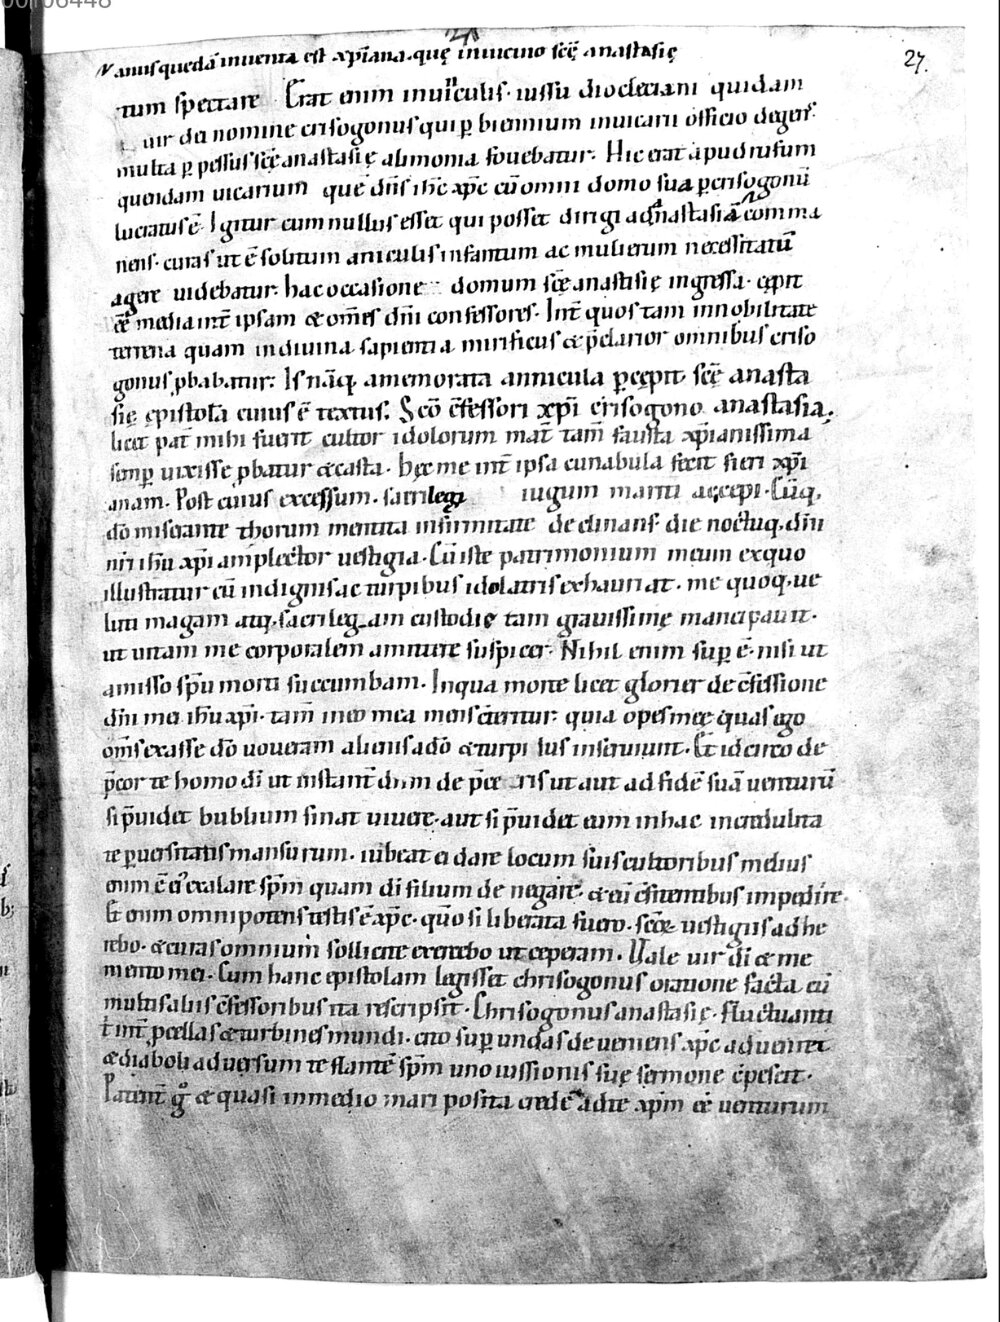 00106448
27.
Anus quedā inventa est xp̄iana. quę in vicino scę̄ anastasię
tum spectare Erat enim in vinculis. iussu diocletiani quidam
uir dei nomine crisogonus qui ꝑ biennium in vicarii officio degens.
multa ꝑpessus scę̄ anastasię alimonia fouebatur. Hic erat apud rufum
quendam uicarium quē dn̄s ih̄c xp̄c cū omni domo sua ꝑ crisogonū
lucratus ē. Igitur cum nullus esset qui posset dirigi ad anastasiā comma
nens. curas ut ē solitum aniculis infantum ac mulierum necessitatū
agere uidebatur. hac occasione domum scę̄ anastasię ingressa. cępit
ēē media int̄ ipsam & om̄es dn̄i confessores. Int̄ quos tam in nobilitate
terrena quam in diuina sapientia mirificus & p̄clarior omnibus criso
gonus ꝓbabatur. Is nāq; a memorata annicula ꝑcępit scę̄ anasta
się epistolā cuius ē textus. Scō c̄fessori xp̄i crisogono anastasia.
licet pat̄ mihi fuerit cultor idolorum mat̄ tam̄ fausta xp̄ianissima
semꝑ uixisse ꝓbatur & casta. hęc me int̄ ipsa cunabula fecit fieri xp̄i
anam. Post cuius excessum. sacrilegi iugum mariti accepi. Cūq;
dō miserante thorum mentita infirmitate declinans die noctuq; dn̄i
nr̄i ih̄u xp̄i amplector uestigia. Cū iste patrimonium meum ex quo
illustratur cū indignis ac turpibus idolatris exhauriat. me quoq; ue
luti magam atq; sacrilegam custodię tam grauissimę mancipauit.
ut uitam me corporalem amittere suspicer. Nihil enim suꝑ ē. nisi ut
amisso sp̄u morti succumbam. In qua morte licet glorier de c̄fessione
dn̄i mei ih̄u xp̄i. tam̄ in eo mea mens c̄teritur. quia opes meę quas ego
om̄s exasse dō uoueram alienis a dō & turpi sus inseruiunt. Et idcirco de
p̄cor te homo dī ut instant̄ dn̄m de p̄ce ris ut aut ad fidē suā uenturū
si p̄uidet bublium sinat uiuere. aut si p̄uidet eum in hac incredulita
te ꝑuersitatis mansurum. iubeat ei dare locum suis cultoribus melius
enim ē ei exalare sp̄m quam dī filium denegare. & eū c̄fitentibus impedire.
Et enim omnipotens testis ē xp̄c. quō si liberata fuero. scōꝝ uestigiis adhe
rebo. & curas omnium sollicite exercebo ut ceperam. Vale uir dī & me
mento mei. Cum hanc epistolam legisset chrisogonus oratione facta cū
multis aliis c̄fessoribus ita rescripsit. Chrisogonus anastasię. Fluctuanti
t̄ int̄ ꝓcellas & turbines mundi. cito suꝑ undas deueniens xp̄c adueniet
& diaboli aduersum te flantē sp̄m uno iussionis suę sermone c̄pescit.
Patient̄ gͦ & quasi in medio mari posita crede ad te xp̄m ēē uenturum